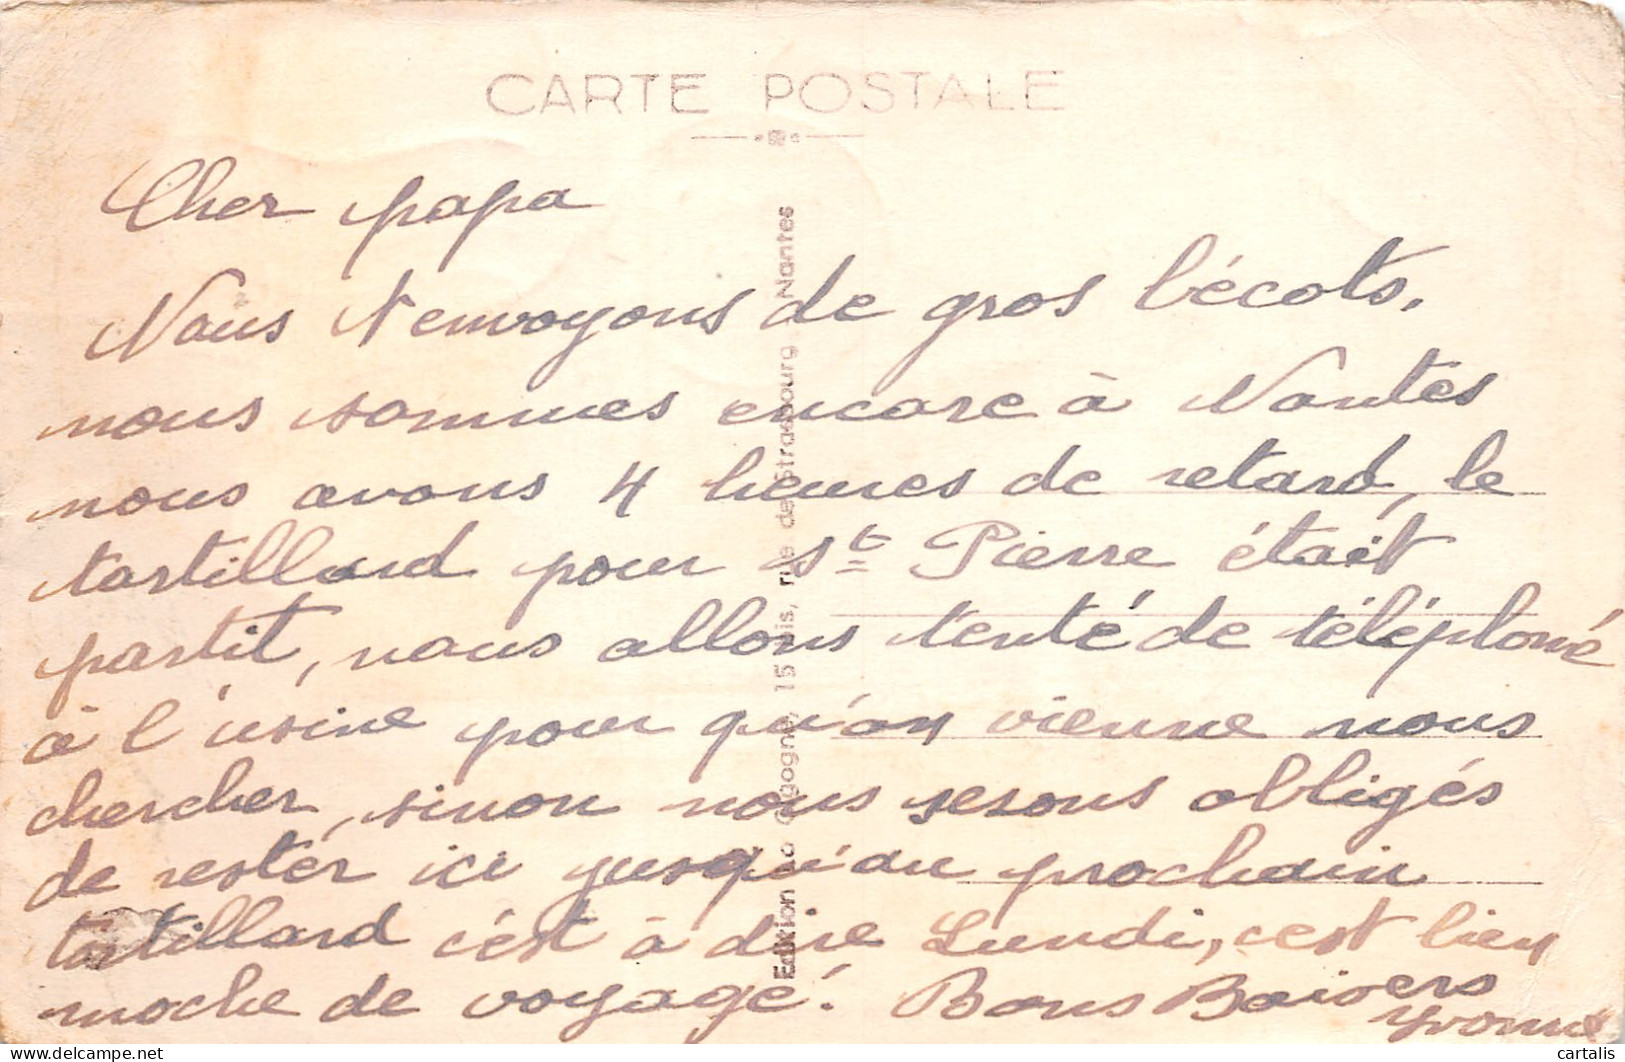 CARTE POSTALE
Cher papa
Nous t'envoyons de gros bécots.
nous sommes encore à Nantes
nous avons 4 heures de retard, le
tortillard pour St Pierre était
partit, nous allons tenté de téléphoné
à l'usine pour qu'on vienne nous
chercher, sinon nous serons obligés
de rester ici jusqu'au prochain
tortillard c'est à dire Lundi, c'est bien
moche de voyagé. Bons Baisers
Yvonne
Edition La Cigogne, 15 bis, rue de Strasbourg, Nantes
cartalis